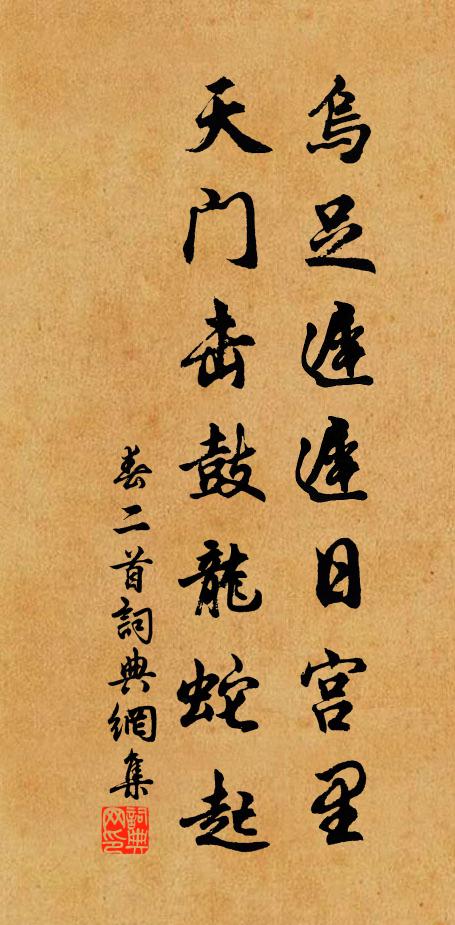 烏足遲遲日宫里
天门击鼓龍蛇起
春二首詞典網集
詞典网印